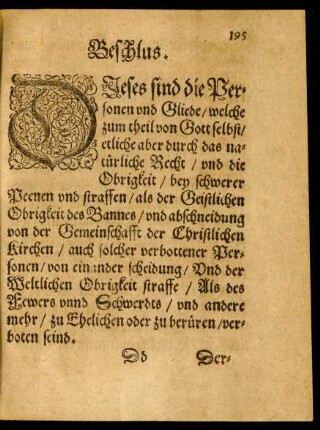 195
Beschlus.
DIeses sind die Per-
sonen vnd Gliede/ welche
zum theil von Gott selbst/
etliche aber durch das na-
türliche Recht / vnd die
Obrigkeit / bey schwerer
Peenen vnd straffen/ als der Geistlichen
Obrigkeit des Bannes/ vnd abschneidung
von der Gemeinschafft der Christlichen
Kirchen / auch solcher verbottener Per-
sonen/ von einander scheidung/ Vnd der
Weltlichen Obrigkeit straffe / Als des
Fewers vnnd Schwerdts / vnd andere
mehr / zu Ehelichen oder zu berüren/ ver-
boten seind.
Dd Der-